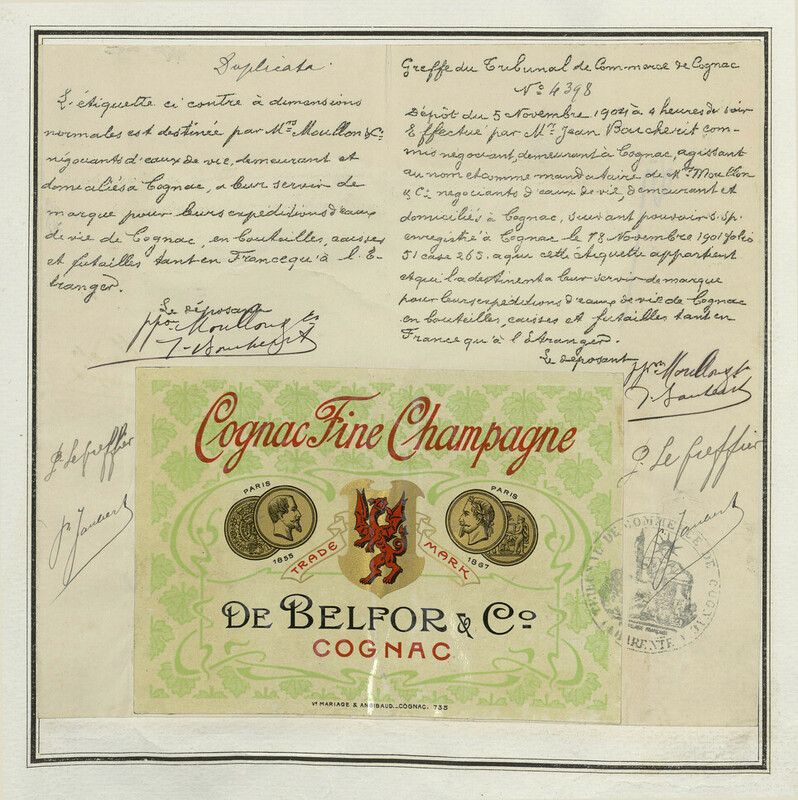 Duplicata.
L'étiquette ci contre à dimensions
normales est destinée par Mrs Moullon & Co
négociants d'eaux de vie, demeurant et
domiciliés à Cognac, a leur servir de
marque pour leurs expéditions d'eaux
de vie de Cognac, en bouteilles, caisses
et futailles tant en France qu'à l'E-
tranger.
Le déposant
ppon Moullon & Co
Greffe du Tribunal de Commerce de Cognac
No 4398
Dépôt du 5 Novembre 1901 à 4 heures de soir
Effectué par Mr Jean Boucherit com-
mis négociant, demeurant à Cognac, agissant
au nom et comme mandataire de Mrs Moullon
& Co negociants d'eaux de vie, demeurant et
domiciliés à Cognac, suivant pouvoir s. sp.
enregistré à Cognac le Novembre 1901 folio
51 case 265. aqui cette étiquette appartient
et qui la destinent a leur servir de marque
pour leurs expéditions d'eaux de vie de Cognac
en bouteilles, caisses et futailles tant en
France qu'à l'Etranger.
Le déposant
ppon Moullon & Co
P. Le Greffier
P. Le Greffier
Cognac Fine Champagne
PARIS
1855
PARIS
1867
TRADE MARK
DE BELFOR & Co
COGNAC
Vt MARIAGE & ANGIBAUD._COGNAC. 735
TRIBUNAL DE COMMERCE DE COGNAC
(CHARENTE)